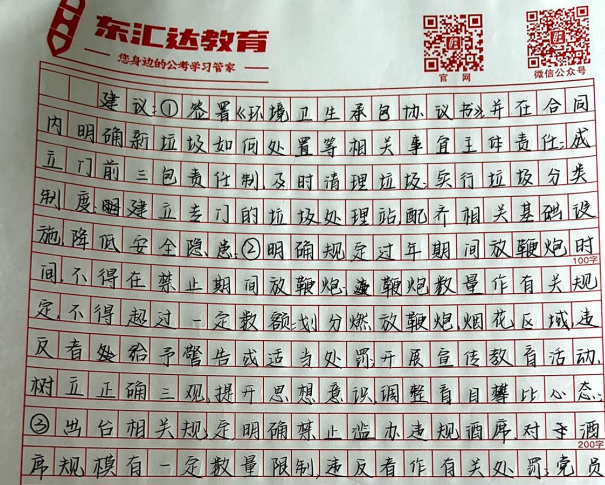 东汇达教育
您身边的公考学习管家
官网
微信公众号
建议:①签署《环境卫生承包协议书》,并在合同
内明确新垃圾如何处置等相关事宜主体责任;成
立门前三包责任制,及时清理垃圾;实行垃圾分类
制度;建立专门的垃圾处理站,配齐相关基础设
施,降低安全隐患;②明确规定过年期间放鞭炮时
100字
间,不得在禁止期间放鞭炮;鞭炮数量作有关规
定,不得超过一定数额;划分燃放鞭炮,烟花区域,违
反者给予警告或适当处罚;开展宣传教育活动,
树立正确三观,提升思想意识,调整盲目攀比心态;
③出台相关规定明确禁止滥办违规酒席,对于酒
200字
席规模有一定数量限制,违反者作有关处罚;党员